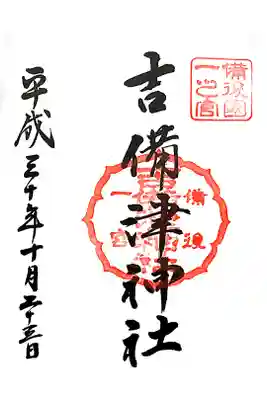 備後國
一之宮
吉備津神社
備後
一宮
平成三十年十月二十三日